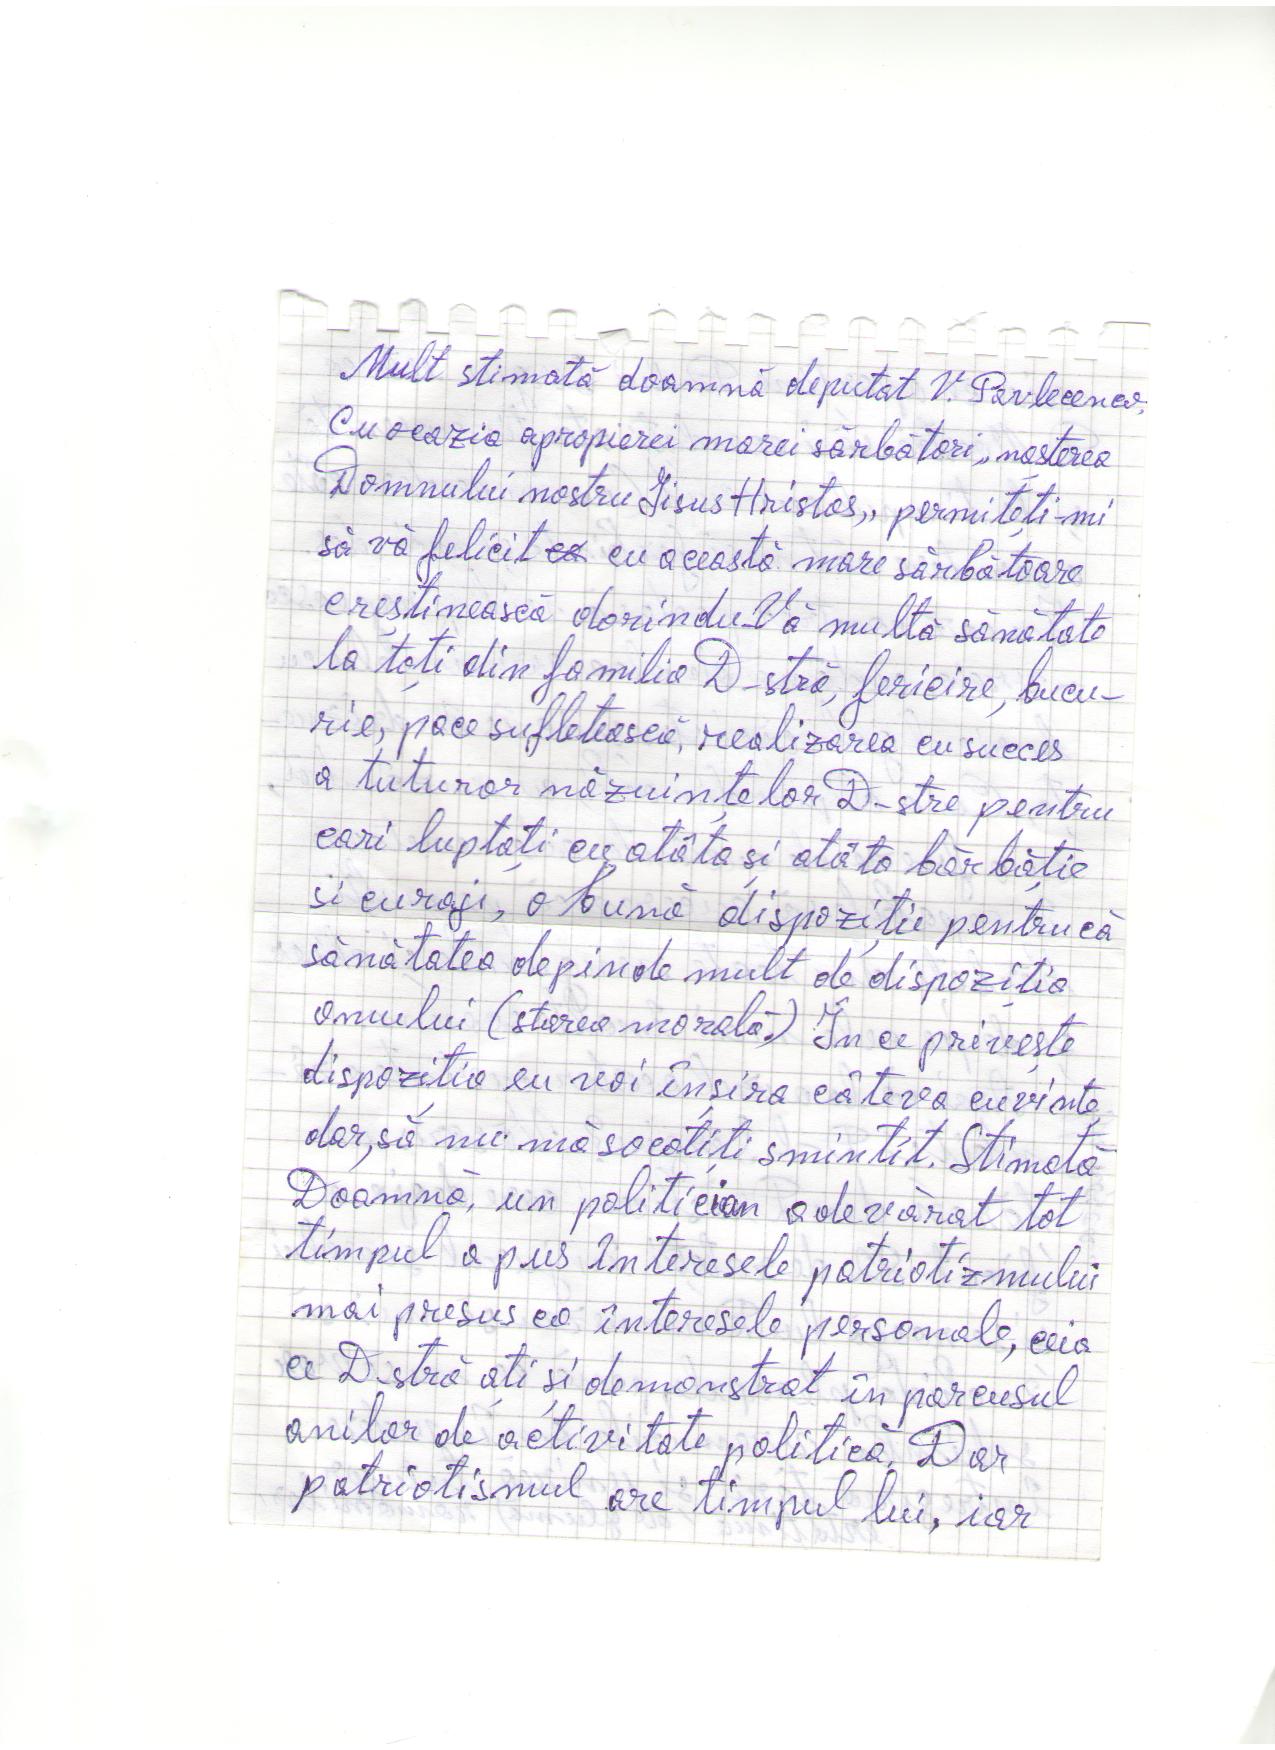 Mult stimată doamnă deputat V. Pavlicenco,
Cu ocazia apropierei marei sărbători „nașterea
Domnului nostru Iisus Hristos„, permiteți-mi
să vă felicit cu această mare sărbătoare
creștinească dorindu-Vă multă sănătate
la toți din familia D-stră, fericire, bucu-
rie, pace sufletească, realizarea cu succes
a tuturor năzuințelor D-stre pentru
cari luptați cu atâta și atâta bărbăție
și curaj, o bună dispoziție pentrucă
sănătatea depinde mult de dispoziția
omului (starea morală.) În ce privește
dispoziția eu voi înșira câteva cuvinte,
dar, să nu mă socotiți smintit. Stimată
Doamnă, un politician adevărat tot
timpul a pus interesele patriotizmului
mai presus ca interesele personale, ceia
ce D-stră ați și demonstrat în parcusul
anilor de activitate politică. Dar
patriotismul are timpul lui, iar